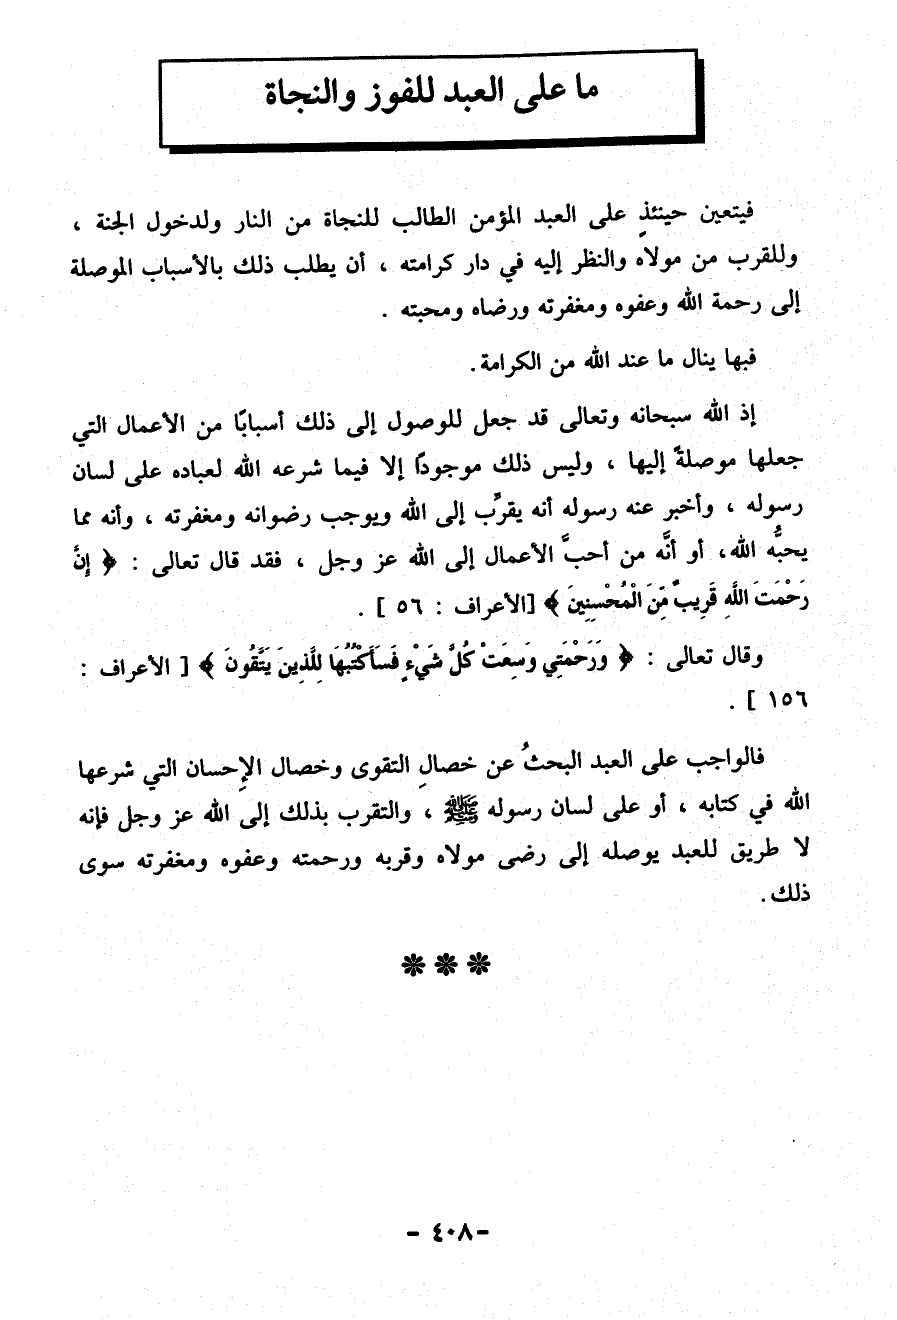 ما على العبد للفوز والنجاة
فيتعين حينئذٍ على العبد المؤمن الطالب للنجاة من النار ولدخول الجنة ،
وللقرب من مولاه والنظر إليه في دار كرامته ، أن يطلب ذلك بالأسباب الموصلة
إلى رحمة الله وعفوه ومغفرته ورضاه ومحبته .
فبها ينال ما عند الله من الكرامة.
إذ الله سبحانه وتعالى قد جعل للوصول إلى ذلك أسبابًا من الأعمال التي
جعلها موصلةً إليها ، وليس ذلك موجودًا إلا فيما شرعه الله لعباده على لسان
رسوله ، وأخبر عنه رسوله أنه يقرِّب إلى الله ويوجب رضوانه ومغفرته ، وأنه مما
يحبُّه الله، أو أنَّه من أحبَّ الأعمال إلى الله عز وجل ، فقد قال تعالى : ﴿ إِنَّ
رَحْمَتَ اللَّهِ قَرِيبٌ مِّنَ الْمُحْسِنِينَ ﴾ [الأعراف : ٥٦ ] .
وقال تعالى : ﴿ وَرَحْمَتِي وَسِعَتْ كُلَّ شَيْءٍ فَسَأَكْتُبُهَا لِلَّذِينَ يَتَّقُونَ ﴾ [ الأعراف :
١٥٦ ] .
فالواجب على العبد البحثُ عن خصالِ التقوى وخصال الإِحسان التي شرعها
الله في كتابه ، أو على لسان رسوله ﷺ ، والتقرب بذلك إلى الله عز وجل فإنه
لا طريق للعبد يوصله إلى رضى مولاه وقربه ورحمته وعفوه ومغفرته سوى
ذلك.
- ٤٠٨ -